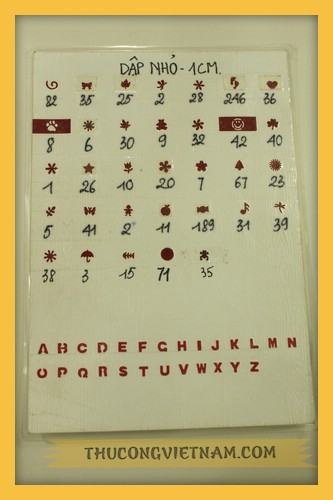 DẬP NHỎ - 1CM.
82 35 25 2 28 246 36
8 6 30 9 32 42 40
1 26 10 20 7 67 23
5 41 2 11 189 31 39
38 3 15 71 35
A B C D E F G H I J K L M N
O P Q R S T U V W X Y Z
THUCONGVIETNAM.COM